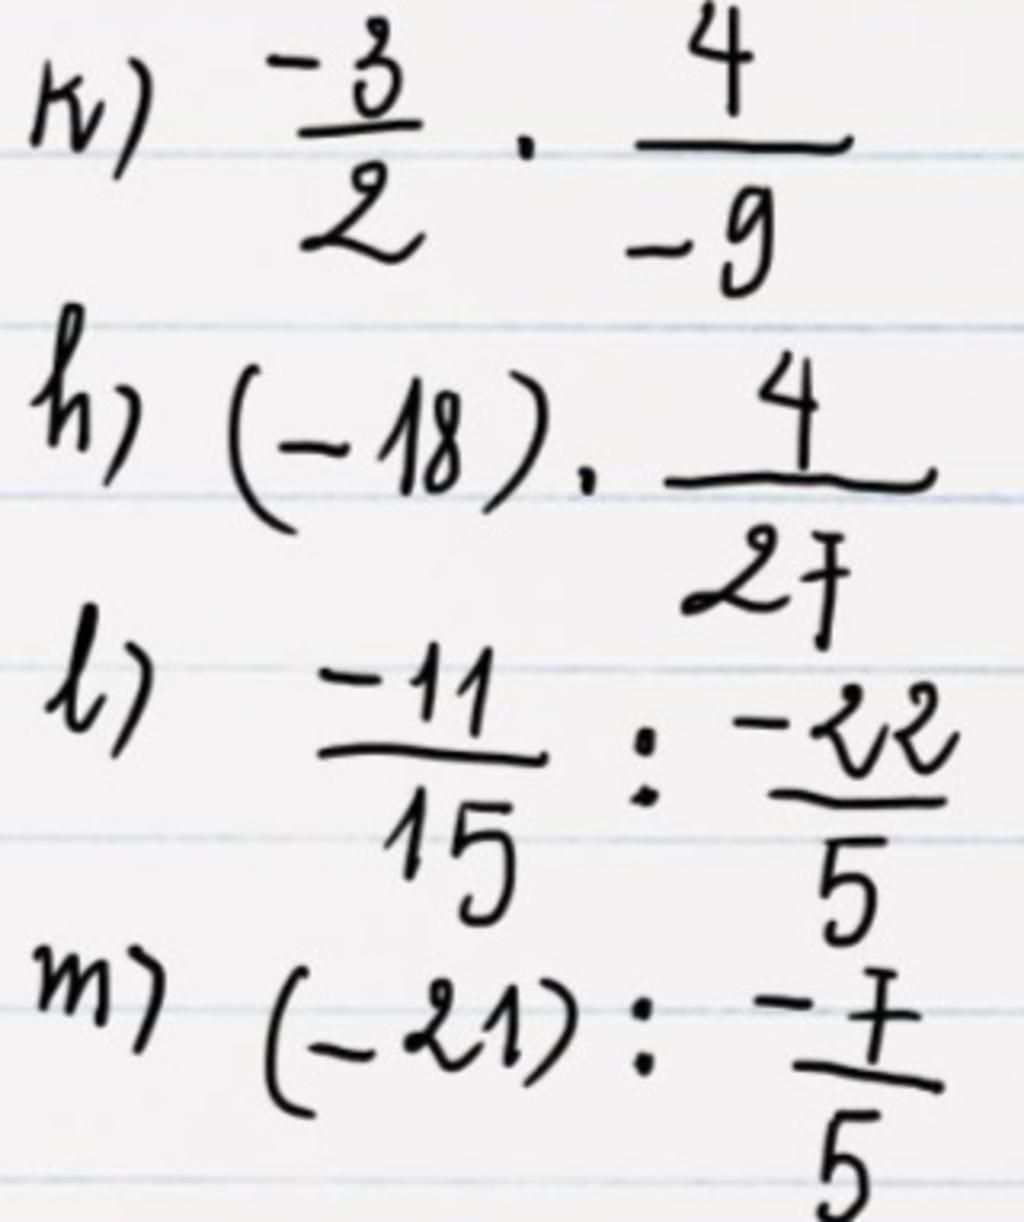 k) -3/2 . 4/-9
h) (-18) . 4/27
l) -11/15 : -22/5
m) (-21) : -7/5